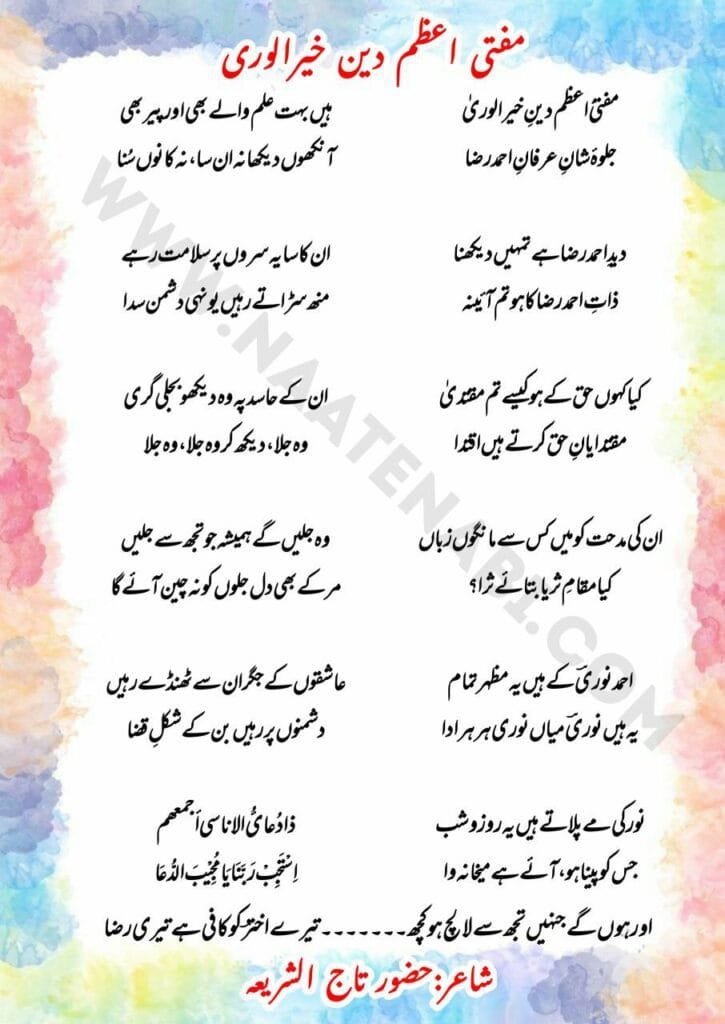 مفتی اعظم دین خیر الوری
مفتی اعظم دینِ خیر الوریٰ
جلوۂ شانِ عرفانِ احمد رضا
دید احمد رضا ہے تمہیں دیکھنا
ذاتِ احمد رضا کا ہو تم آئینہ
کیا کہوں حق کے ہو کیسے تم مقتدیٰ
مقتدایانِ حق کرتے ہیں اقتدا
ان کی مدحت کو میں کس سے مانگوں زباں
کیا مقامِ ثریا بتائے ثرا؟
احمد نوریؔ کے ہیں یہ مظہر تمام
یہ ہیں نوریؔ میاں نوری ہر ہر ادا
نور کی مے پلاتے ہیں یہ روز و شب
جس کو پینا ہو، آئے ہے میخانہ وا
ہیں بہت علم والے بھی اور پیر بھی
آنکھوں دیکھا نہ ان سا، نہ کانوں سُنا
ان کا سایہ سروں پر سلامت رہے
منھ سڑاتے رہیں یونہی دشمن سدا
ان کے حاسد پہ وہ دیکھو بجلی گری
وہ جلا، دیکھ کر وہ جلا، وہ جلا
وہ جلیں گے ہمیشہ جو تجھ سے جلیں
مر کے بھی دل جلوں کو نہ چین آئے گا
عاشقوں کے جگر ان سے ٹھنڈے رہیں
دشمنوں پر رہیں بن کے شکلِ قضا
ذا دُعائیُ الاناسی أجمعھم
اِسْتَجِبْ رَبَّنَا یَا مُجِیْبَ الدُّعَا
اور ہوں گے جنہیں تجھ سے لالچ ہو کچھ ------- تیرے اخترؔ کو کافی ہے تیری رضا
شاعر: حضور تاج الشریعہ
WWW.NAATENABI.COM